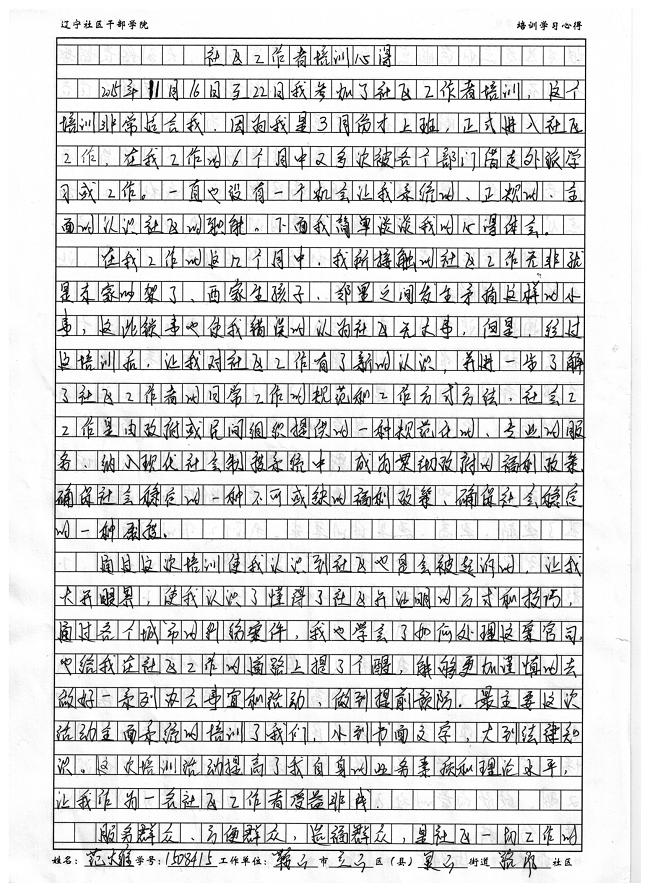 辽宁社区干部学院 培训学习心得
社区工作者培训心得
2015年11月16日至22日我参加了社区工作者培训，这个
培训非常适合我，因为我是3月份才上班，正式进入社区
工作，在我工作的6个月中又多次被各个部门借走外派学
习或工作。一直也没有一个机会让我系统的、正规的、全
面的认识社区的职能。下面我简单谈谈我的心得体会。
在我工作的这几个月中，我所接触的社区工作无非就
是东家吵架了、西家生孩子，邻里之间发生矛盾这样的小
事，这些琐事也使我错误的认为社区无大事，但是，经过
这培训后，让我对社区工作有了新的认识，并进一步了解
了社区工作者的日常工作的规范和工作方式方法，社会工
工作是由政府或民间组织提供的一种规范化的、专业的服
务，纳入现代社会制度系统中，成为贯彻政府的福利政策
确保社会稳定的一种不可或缺的福利政策，确保社会稳定
的一种制度。
通过这次培训使我认识到社区也是会被起诉的，让我
大开眼界，使我认识了懂得了社区开证明的方式和技巧，
通过各个城市的纠纷案件，我也学会了如何处理这案官司，
也给我在社区工作的道路上提了个醒，能够更加谨慎的去
做好一系列办公事宜和活动，做到提前预防。最主要这次
活动全面系统的培训了我们，小到书面文字，大到法律知
识。这次培训活动提高了我自身的业务素质和理论水平，
让我作为一名社区工作者受益非浅。
服务群众、方便群众，造福群众，是社区一切工作的
姓名：范大维 学号：1508415 工作单位：鞍山 市 立山 区（县） 灵山 街道 社区